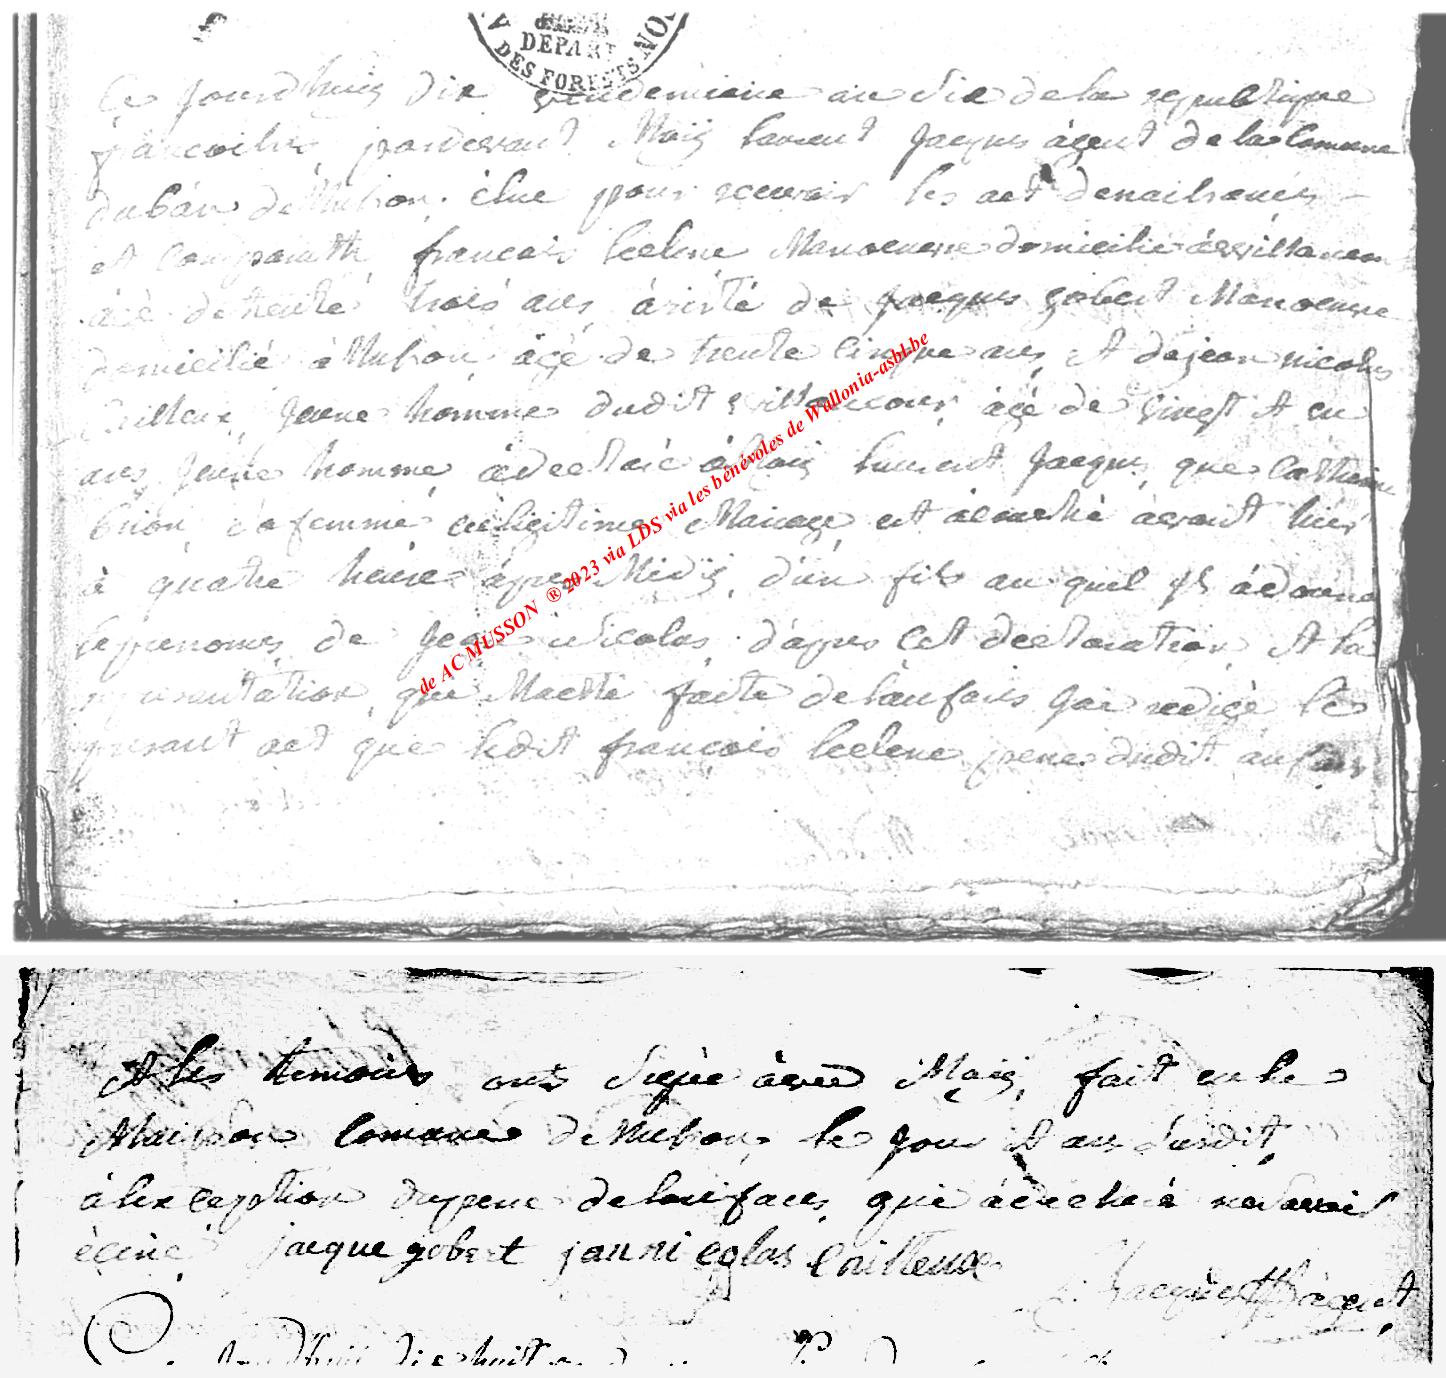 DEPART
DES FORESTS
Ce Jourdhuiy dix vendemiaire an Six de la republique
francoise, pardevant Moiÿ laurent Jacques ágent de la Comune
du bán de Muson, élue pour recevoir les act denaissances
et Comparuth francois leclerc Manoeuvre domicilié á
ágé de trente trois ans, ásisté de Jacques gobert Manoeuvre
domicilié á Muson ágé de trente Cinque ans, et dejean nicolas
Cailleux, Jeune homme dudit villancour, ágé de Vingt et un
ans, Jeune homme, ádeclaré á Moiÿ laurent Jacques, que Catherine
brion, sa femme en legitime Mariage, est acouché ávant hier
á quatre heure áprès Midÿ, d'un fils au quel Jl ádonné
le prenoms, de nicolas, d'apres cet declaration, et la
representation, que Maetté faitte de lanfans Jai redigé le
present act que ledit francois leclerc pere dudit anfans
de AC MUSSON ® 2023 via LDS via les bénévoles de Wallonia-asbl.be
et les temoins ont Signé ávec Moiÿ, fait en la
Maison Comune de Muson, le Jour et an Susdit,
álexception dupere de lanfans, que ádeclaré ne savoir
écrire jacque gobert jannicolas Cailleux
Jacques ágent
Ce Jourdhuii dix huit